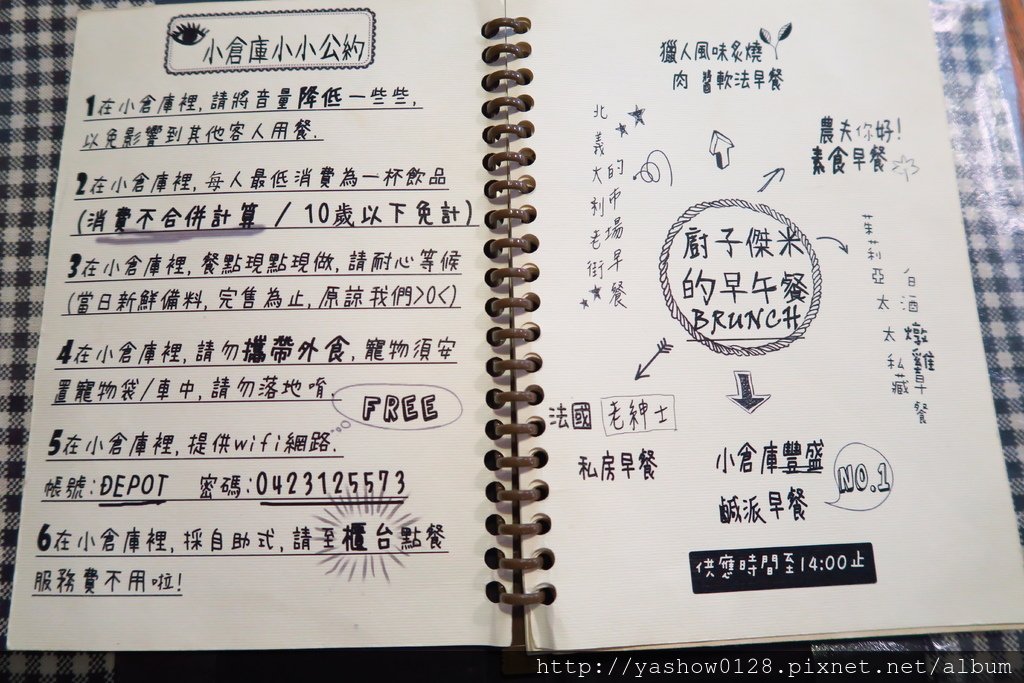 小倉庫小小公約
1在小倉庫裡,請將音量降低一些些,
以免影響到其他客人用餐.
2在小倉庫裡,每人最低消費為一杯飲品
(消費不合併計算 / 10歲以下免計)
3在小倉庫裡,餐點現點現做,請耐心等候
(當日新鮮備料,完售為止,原諒我們>0<)
4在小倉庫裡,請勿攜帶外食,寵物須安
置寵物袋/車中,請勿落地唷.
FREE
5在小倉庫裡,提供wifi網路.
帳號:DEPOT 密碼:0423125573
6在小倉庫裡,採自助式,請至櫃台點餐
服務費不用啦!
獵人風味炙燒
肉醬軟法早餐
農夫你好!
素食早餐
北義大利老街
的市場早餐
廚子傑米
的早午餐
BRUNCH
茱莉亞太太私藏
白酒燉雞早餐
法國 老紳士
私房早餐
小倉庫豐盛
鹹派早餐
NO.1
供應時間至14:00止
http://yashow0128.pixnet.net/album